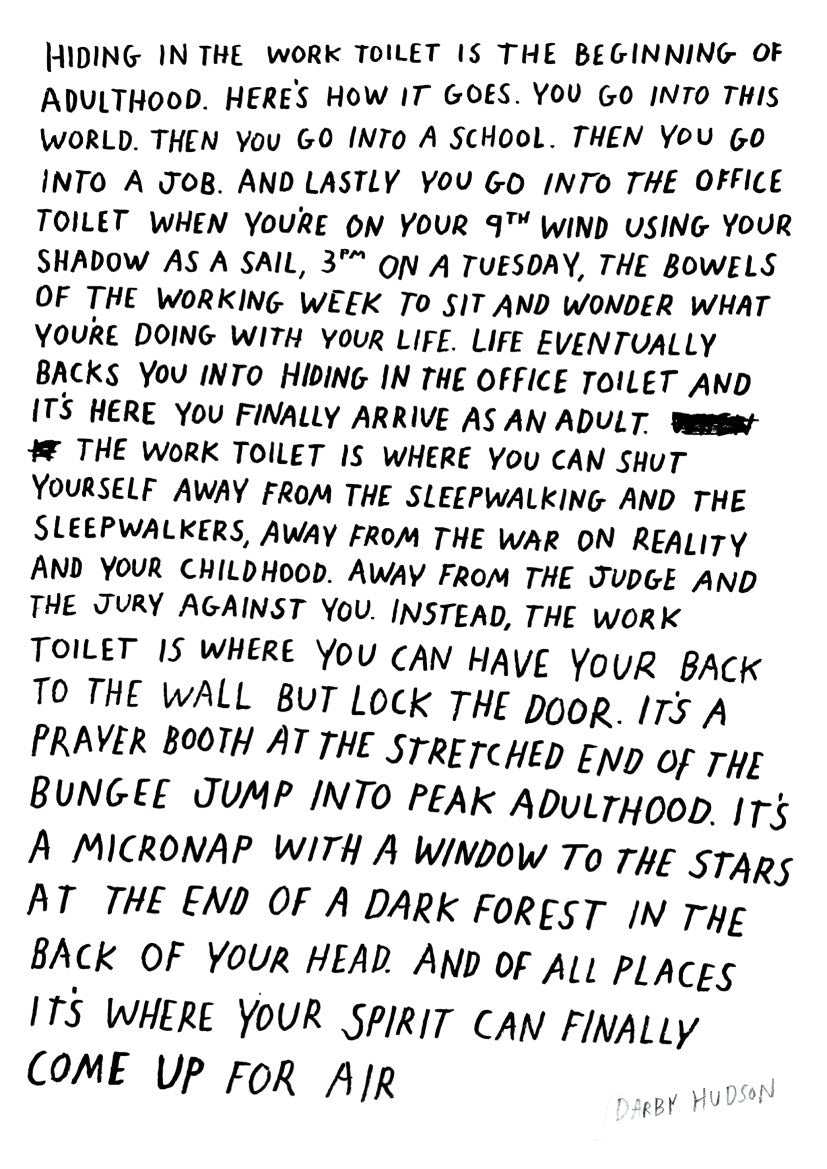 HIDING IN THE WORK TOILET IS THE BEGINNING OF
ADULTHOOD. HERE'S HOW IT GOES. YOU GO INTO THIS
WORLD. THEN YOU GO INTO A SCHOOL. THEN YOU GO
INTO A JOB. AND LASTLY YOU GO INTO THE OFFICE
TOILET WHEN YOU'RE ON YOUR 9TH WIND USING YOUR
SHADOW AS A SAIL, 3PM ON A TUESDAY, THE BOWELS
OF THE WORKING WEEK TO SIT AND WONDER WHAT
YOU'RE DOING WITH YOUR LIFE. LIFE EVENTUALLY
BACKS YOU INTO HIDING IN THE OFFICE TOILET AND
IT'S HERE YOU FINALLY ARRIVE AS AN ADULT.
THE WORK TOILET IS WHERE YOU CAN SHUT
YOURSELF AWAY FROM THE SLEEPWALKING AND THE
SLEEPWALKERS, AWAY FROM THE WAR ON REALITY
AND YOUR CHILDHOOD. AWAY FROM THE JUDGE AND
THE JURY AGAINST YOU. INSTEAD, THE WORK
TOILET IS WHERE YOU CAN HAVE YOUR BACK
TO THE WALL BUT LOCK THE DOOR. IT'S A
PRAYER BOOTH AT THE STRETCHED END OF THE
BUNGEE JUMP INTO PEAK ADULTHOOD. IT'S
A MICRONAP WITH A WINDOW TO THE STARS
AT THE END OF A DARK FOREST IN THE
BACK OF YOUR HEAD. AND OF ALL PLACES
IT'S WHERE YOUR SPIRIT CAN FINALLY
COME UP FOR AIR
DARBY HUDSON